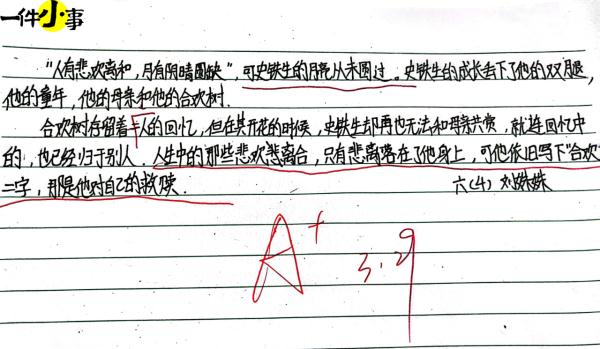 一件小事
“人有悲欢离和，月有阴晴圆缺”，可史铁生的月亮从未圆过。史铁生的成长丢下了他的双腿，
他的童年，他的母亲和他的合欢树.
合欢树存留着人的回忆，但在其开花的时候，史铁生却再也无法和母亲共赏，就连回忆中
的，也已经归于别人.人生中的那些悲欢离合，只有悲离落在了他身上，可他依旧写下“合欢”
二字，那是他对自己的救赎.
六(4) 刘姝姝
A+
3.29